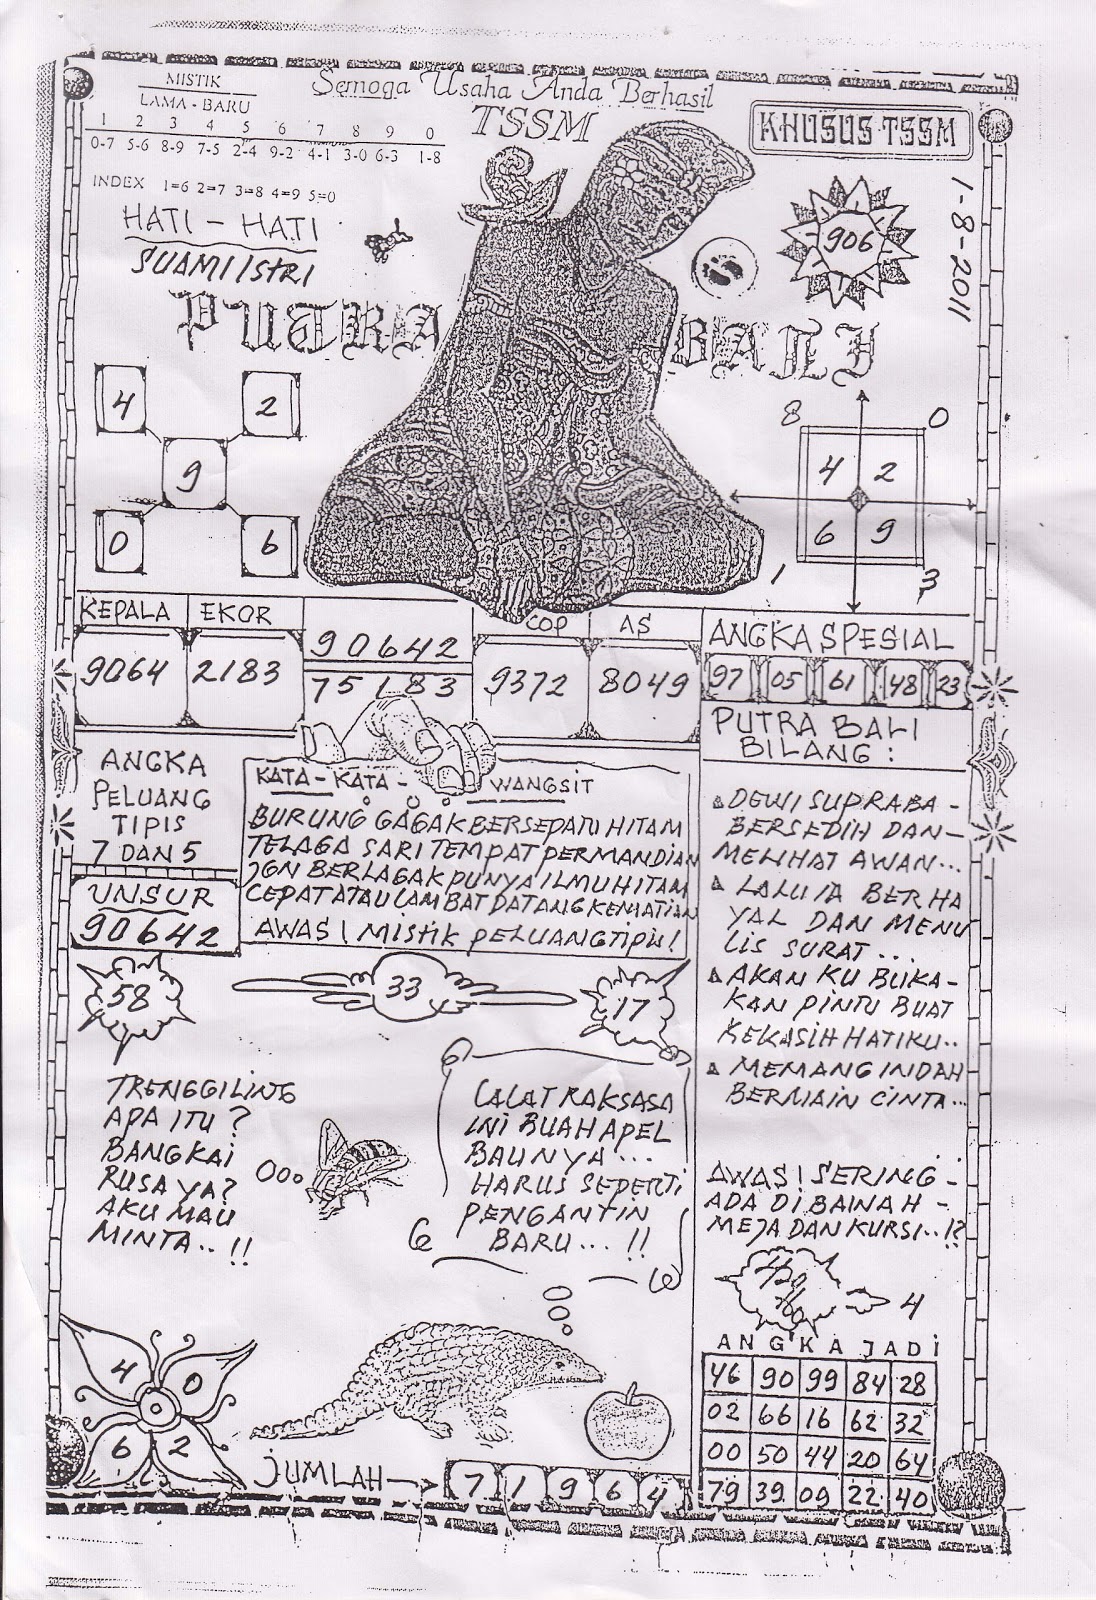 MISTIK
LAMA - BARU
1 2 3 4 5 6 7 8 9 0
0-7 5-6 8-9 7-5 2-4 9-2 4-1 3-0 6-3 1-8
INDEX 1=6 2=7 3=8 4=9 5=0
HATI - HATI
SUAMI/STRI
Semoga Usaha Anda Berhasil
TSSM
KHUSUS TSSM
1-8-2011
906
PUTRA BALI
4 2
9
0 6
8 0
4 2
6 9
1 3
KEPALA EKOR
9064 2183
90642
75183
COP AS
9372 8049
ANGKA SPESIAL
97 05 61 48 23
PUTRA BALI
BILANG :
ANGKA
PELUANG
TIPIS
7 DAN 5
UNSUR
90642
KATA - KATA - WANGSIT
BURUNG GAGAK BERSEPATU HITAM
TELAGA SARI TEMPAT PERMANDIAN
JGN BERLAGAK PUNYA ILMU HITAM
CEPAT ATAU LAMBAT DATANG KEMATIAN
AWAS! MISTIK PELUANG TIPIS!
DEWI SUPRABA -
BERSEDIH DAN -
MELIHAT AWAN...
LALU IA BERHA
YAL DAN MENU
LIS SURAT ...
AKAN KU BUKA -
KAN PINTU BUAT
KEKASIH HATIKU..
MEMANG INDAH
BERMAIN CINTA...
58
33
17
TRENGGILING
APA ITU ?
BANGKAI
RUSA YA?
AKU MAU
MINTA..!!
LALAT RAKSASA
INI BUAH APEL
BAUNYA ...
HARUS SEPERTI
PENGANTIN
BARU...!!
AWAS! SERING -
ADA DI BAWAH -
MEJA DAN KURSI..!?
4
ANGKA JADI
46 90 99 84 28
02 66 16 62 32
00 50 44 20 64
79 39 09 22 40
4 0
6 2
JUMLAH
7 1 9 6 4